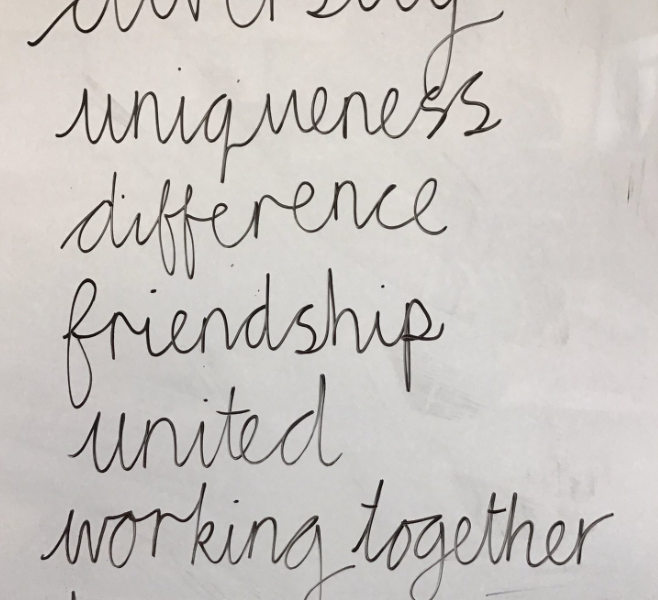 diversity
uniqueness
difference
friendship
united
working together